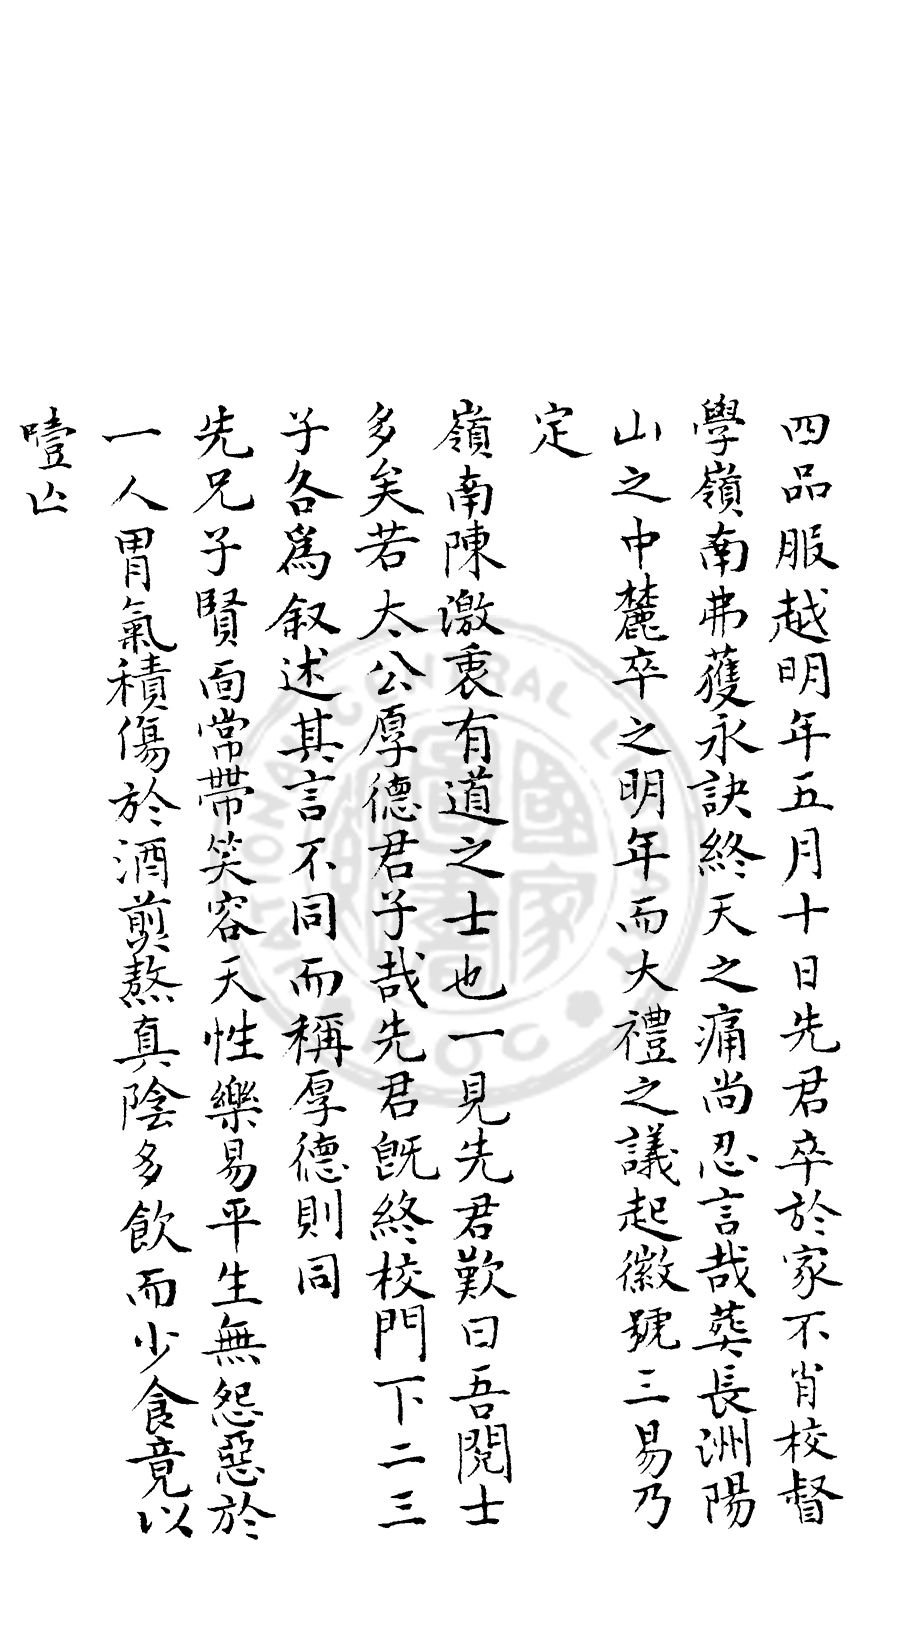 四品服越明年五月十日先君卒於家不肖校督
學嶺南弗獲永訣終天之痛尚忍言哉葬長洲陽
山之中麓卒之明年而大禮之議起徽號三易乃
定
嶺南陳激衷有道之士也一見先君歎曰吾閱士
多矣若太公厚德君子哉先君既終校門下二三
子各為叙述其言不同而稱厚德則同
先兄子賢面常帶笑容天性樂易平生無怨惡於
一人胃氣積傷於酒煎熬真陰多飲而少食竟以
噎亾
NATIONAL CENTRAL LIBRARY
國家圖書館